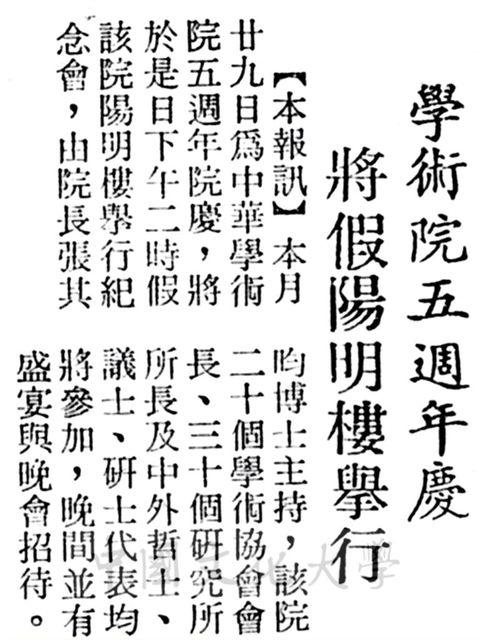 學術院五週年慶
將假陽明樓舉行
【本報訊】本月
廿九日爲中華學術
院五週年院慶，將
於是日下午二時假
該院陽明樓舉行紀
念會，由院長張其
昀博士主持，該院
二十個學術協會會
長、三十個研究所
所長及中外哲士、
議士、研士代表均
將參加，晚間並有
盛宴與晚會招待。
中國文化大學